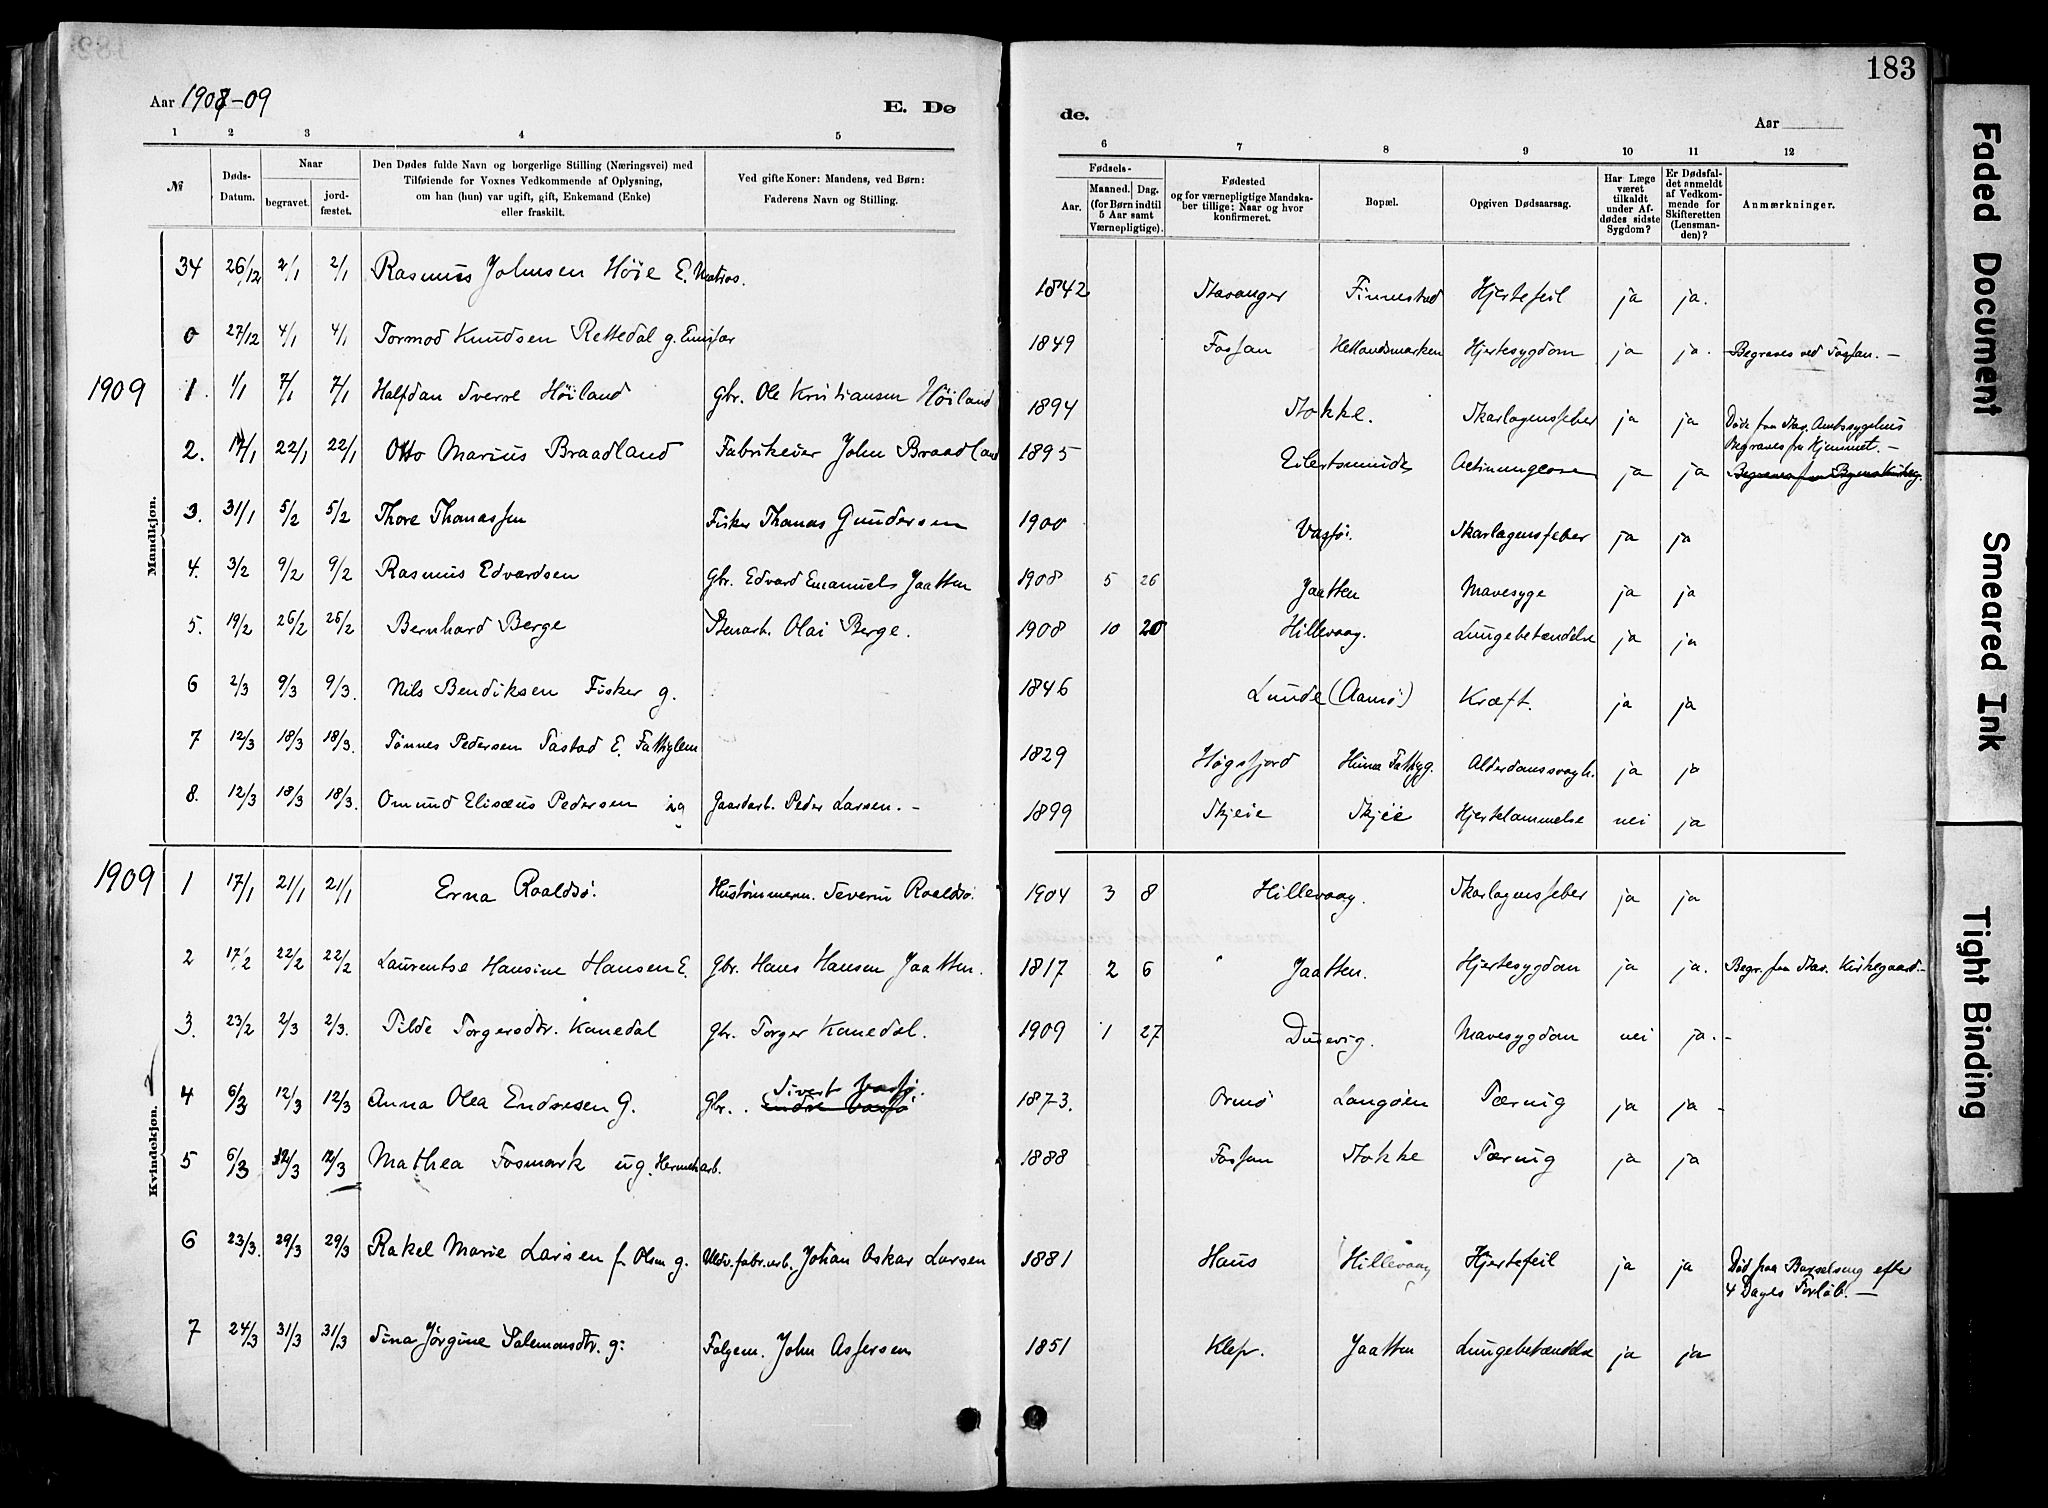 183
Aar 1908-09 E. Døde. Aar
1 2 3 4 5 6 7 8 9 10 11 12
№ Døds-Datum. Naar begravet. jordfæstet. Den Dødes fulde Navn og borgerlige Stilling (Næringsvei) med Tilføiende for Voxnes Vedkommende af Oplysning, om han (hun) var ugift, gift, Enkemand (Enke) eller fraskilt. Ved gifte Koner: Mandens, ved Børn: Faderens Navn og Stilling. Fødsels- Aar. Maaned. Dag. (for Børn indtil 5 Aar samt Værnepligtige). Fødested og for værnepligtige Mandskaber tillige: Naar og hvor konfirmeret. Bopæl. Opgiven Dødsaarsag. Har Læge været tilkaldt under Afdødes sidste Sygdom? Er Dødsfaldet anmeldt af Vedkommende for Skifteretten (Lensmanden)? Anmærkninger.
Mandkjøn.
34 26/12 2/1 2/1 Rasmus Johnsen Höie E. Matros. 1842 Stavanger Finnestad Hjertefeil ja ja.
0 27/12 4/1 4/1 Tormod Knudsen Rettedal g. 1849 Fossan Hetlandsmarken Hjertesygdom ja ja. Begraves ved Fossan. —
1909 1. 1/1 7/1 7/1 Halfdan Sverre Höiland Gbr. Ole Kristiansen Höiland 1894 Stokke. Skarlagensfeber ja ja Døde fra Stav. Amtssygehus Begraves fra Hjemmet. —
2. 17/1 22/1 22/1 Otto Marius Braadland John Braadland 1895 ja ja
3. 31/1 5/2 5/2 Thore Thomassen Fisker Thomas Gundersen 1900 Vassöi. Skarlagensfeber ja ja
4. 3/2 9/2 9/2 Rasmus Edvardsen Gbr. Edvard Emanuels Jaatten 1908 5 26 Jaatten Mavesyge ja ja
5. 19/2 26/2 26/2 Bernhard Berge Stenarb. Olai Berge. 1908 10 20 Hillevaag. Lungebetændelse ja ja
6 2/3 9/3 9/3. Nils Bendiksen Fisker g. 1846 Lunde (Aamö) Kræft. ja ja
7 12/3 18/3 18/3. Tönnes Pedersen Tastad E. Fattiglem 1829 Høgsfjord Fattigg. ja ja
8. 12/3 18/3 18/3. Omund Elisæus Pedersen ug Gaardarb. Peder Larsen. — 1899 Skjeie Skjeie Hjertelammelse nei ja
Kvindekjøn.
1909 1 17/1 21/1 21/1 Erna Roaldsö. Hustömmerm. Severin Roaldsö. 1904 3 8 Hillevaag. Skarlagensfeber ja ja
2 17/2 22/2 22/2 Laurentse Hansine Hansen E. Gbr. Hans Hansen Jaatten. 1817 2 6 Jaatten. Hjertesygdom ja ja. Begr. fra Stav. Kirkegaard. —
3. 23/2 2/3 2/3. Tilde Torgersdtr. Kanedal Gbr. Torger Kanedal. 1909 1 27 Dusevig. Mavesygdom nei ja. —
4 6/3 12/3 12/3 Anna Olea Endresen g. Gbr. Sivert Vassö. 1873. Ormö Langöen Tæring ja ja —
5 6/3 12/3 12/3 Mathea Fosmark ug. Hermetikarb. 1888 Fossan Stokke Tæring ja ja
6 23/3. 29/3 29/3 Rakel Marie Larsen f. Olsen g. Uldv.fabr.arb. Johan Oskar Larsen 1881 Haus Hillevaag Hjertefeil ja ja Död paa Barselseng efter 4 Dages Forløb. —
7 24/3 31/3 31/3 Sina Jørgine Salemonsdtr. g: Folgem. John Asserson 1851 Klep. Jaatten Lungebetændelse ja ja
Faded Document
Smeared Ink
Tight Binding